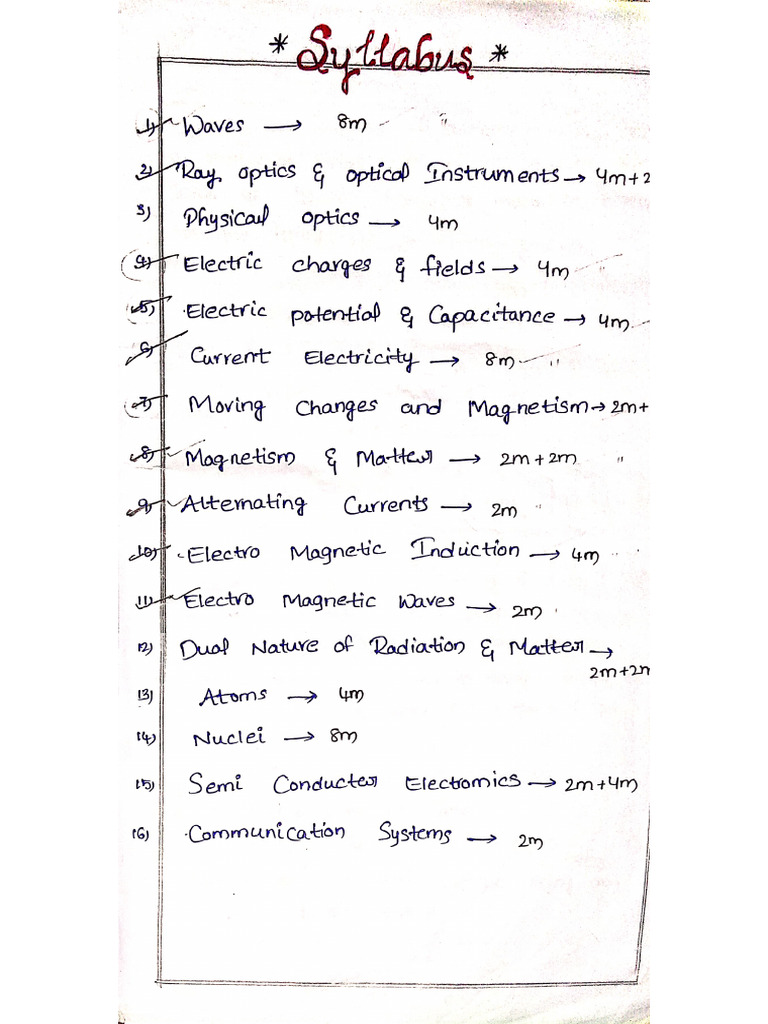 * Syllabus *
1) Waves → 8m "
2) Ray optics & optical Instruments → 4m+2
3) Physical optics → 4m
4) Electric charges & fields → 4m "
5) Electric potential & Capacitance → 4m
6) Current Electricity → 8m "
7) Moving Changes and Magnetism → 2m+
8) Magnetism & Matter → 2m+2m "
9) Alternating Currents → 2m "
10) Electro Magnetic Induction → 4m "
11) Electro Magnetic Waves → 2m
12) Dual Nature of Radiation & Matter →
2m+2m
13) Atoms → 4m
14) Nuclei → 8m
15) Semi Conducter Electromics → 2m+4m
16) Communication Systems → 2m